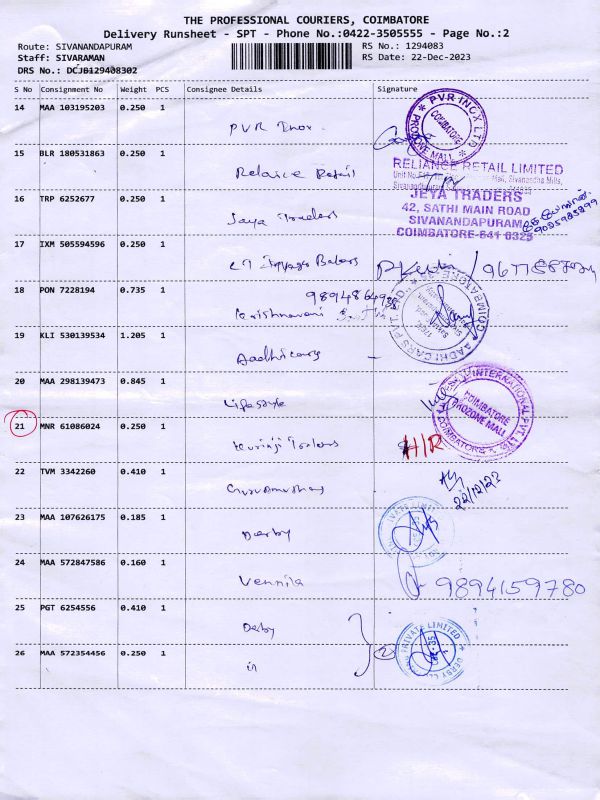 THE PROFESSIONAL COURIERS, COIMBATORE
Delivery Runsheet - SPT - Phone No.:0422-3505555 - Page No.:2
Route: SIVANANDAPURAM
RS No.: 1294083
Staff: SIVARAMAN
RS Date: 22-Dec-2023
DRS No.: DCJB129408302
S No Consignment No Weight PCS Consignee Details Signature
14 MAA 103195203 0.250 1
PVR Inox
PVR INOX LTD
COIMBATORE
PROZONE MALL
15 BLR 180531863 0.250 1
Reliance Retail
RELIANCE RETAIL LIMITED
16 TRP 6252677 0.250 1
Jaya Traders
JEYA TRADERS
42, SATHI MAIN ROAD
SIVANANDAPURAM
COIMBATORE-641 035
17 IXM 505594596 0.250 1
18 PON 7228194 0.735 1
AADHI CARS PVT. LTD.
COIMBATORE
19 KLI 530139534 1.205 1
Aadhi cars
20 MAA 298139473 0.845 1
Lifestyle
INTERNATIONAL PVT LTD
COIMBATORE
PROZONE MALL
COIMBATORE
21 MNR 61086024 0.250 1
H/R
22 TVM 3342260 0.410 1
22/12/23
23 MAA 107626175 0.185 1
Derby
24 MAA 572847586 0.160 1
Vennila
9894159780
25 PGT 6254556 0.410 1
Derby
PRIVATE LIMITED
26 MAA 572354456 0.250 1
2